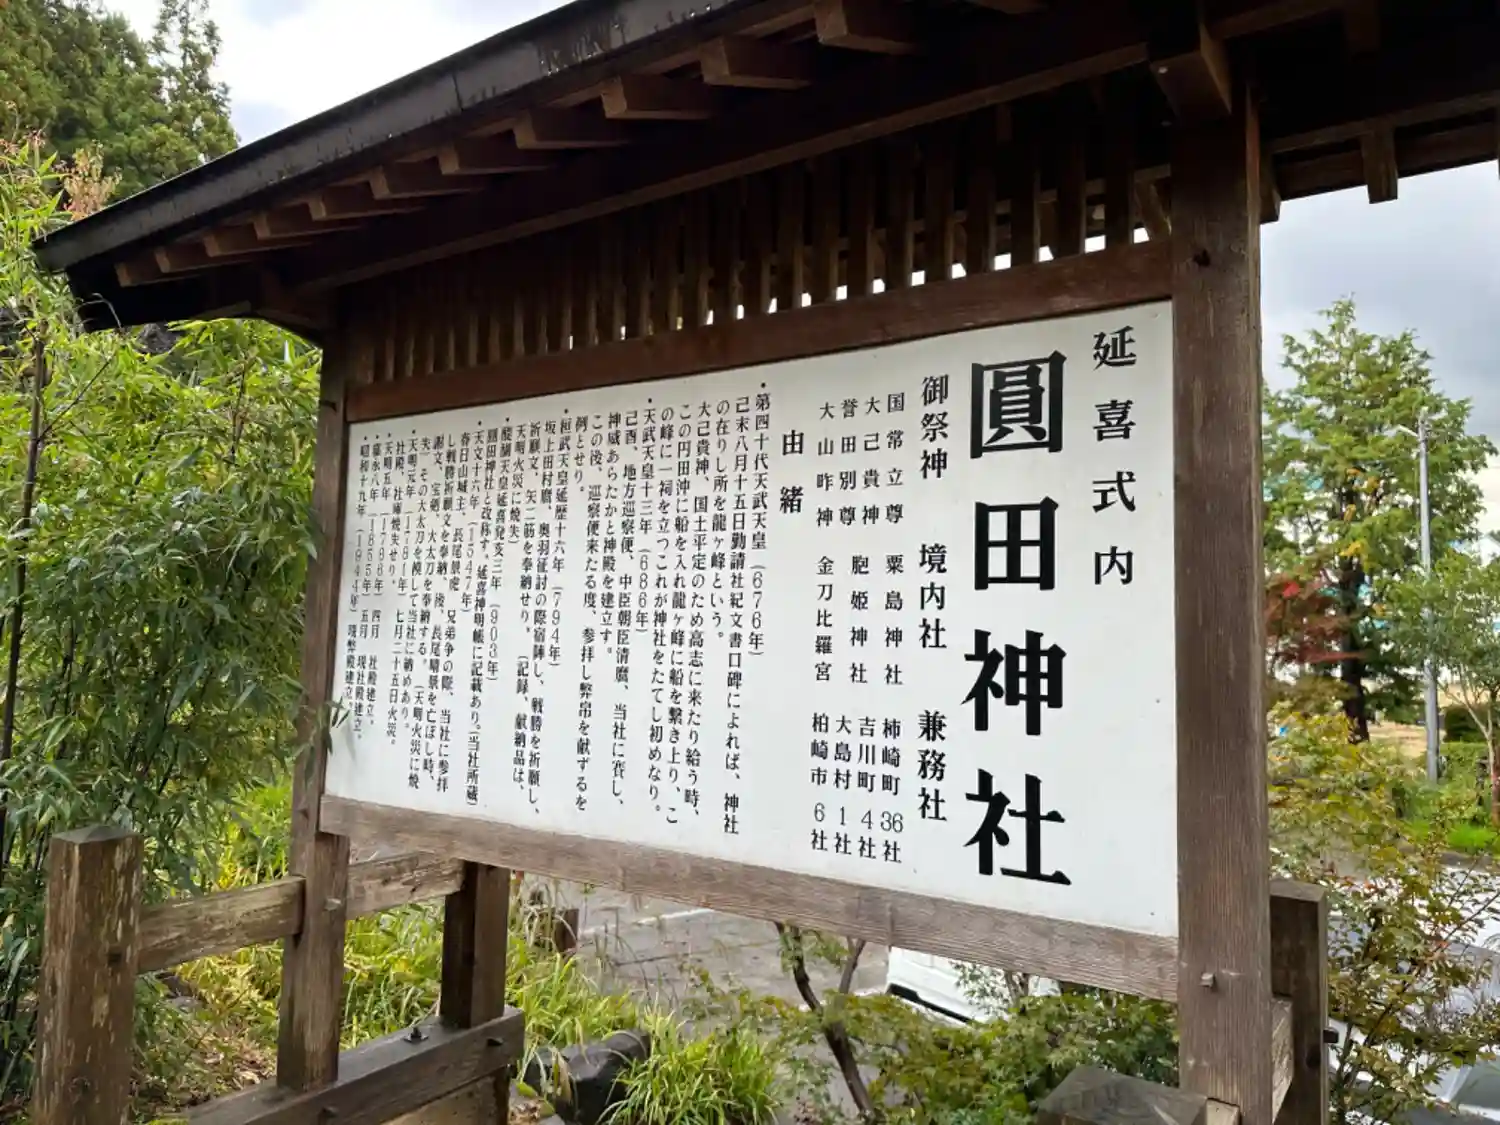 延喜式内
圓田神社
御祭神　境内社　兼務社
国常立尊　粟島神社　柿崎町 36社
大己貴神　胞姫神社　吉川町 4社
誉田別尊　大島村 1社
大山昨神　金刀比羅宮　柏崎市 6社
由緒
・第四十代天武天皇（676年）
己未八月十五日勤請社紀文書口碑によれば、神社
の在りし所を龍ヶ峰という。
大己貴神、国土平定のため高志に来たり給う時、
この円田沖に船を入れ龍ヶ峰に船を繋き上り、こ
の峰に一祠を立つこれが神社をたてし初めなり。
・天武天皇十三年（686年）
己酉、地方巡察使、中臣朝臣清麿、当社に賽し、
神威あらたかと神殿を建立す。
この後、巡察使来たる度、参拝し弊帛を献ずるを
例とせり。
・桓武天皇延歴十六年（794年）
坂上田村麿、奥羽征討の際宿陣し、戦勝を祈願し、
祈願文、矢二筋を奉納せり。（記録、献納品は、
天明火災に焼失）
・醍醐天皇延喜発亥三年（903年）
圓田神社と改称す。延喜神明帳に記載あり。（当社所蔵）
・天文十六年（1547年）
春日山城主、長尾景虎　兄弟争の際、当社に参拝
し戦勝祈願文を奉納、後、長尾晴景を亡ぼし時、
謝文、宝剣、大太刀を奉納する。（天明火災に焼
失）その大太刀を模して当社に納めあり。
・天明元年（1781年）七月二十五日火災。
社殿、社庫焼失せり。
・天明五年（1786年）四月　社殿建立。
・嘉永八年（1855年）五月　現社殿建立。
・昭和十九年（1944年）　現弊殿建立。